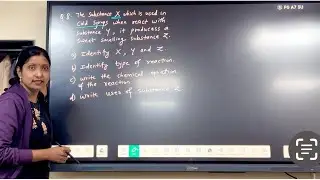 Q 8. The Substance X which is used in
Cold Syrups when react with
Substance Y, it produces a
Sweet smelling Substance Z.
a) Identify X, Y and Z
b) Identify type of reaction.
c) write the chemical equation
of the reaction
d) write uses of Substance Z